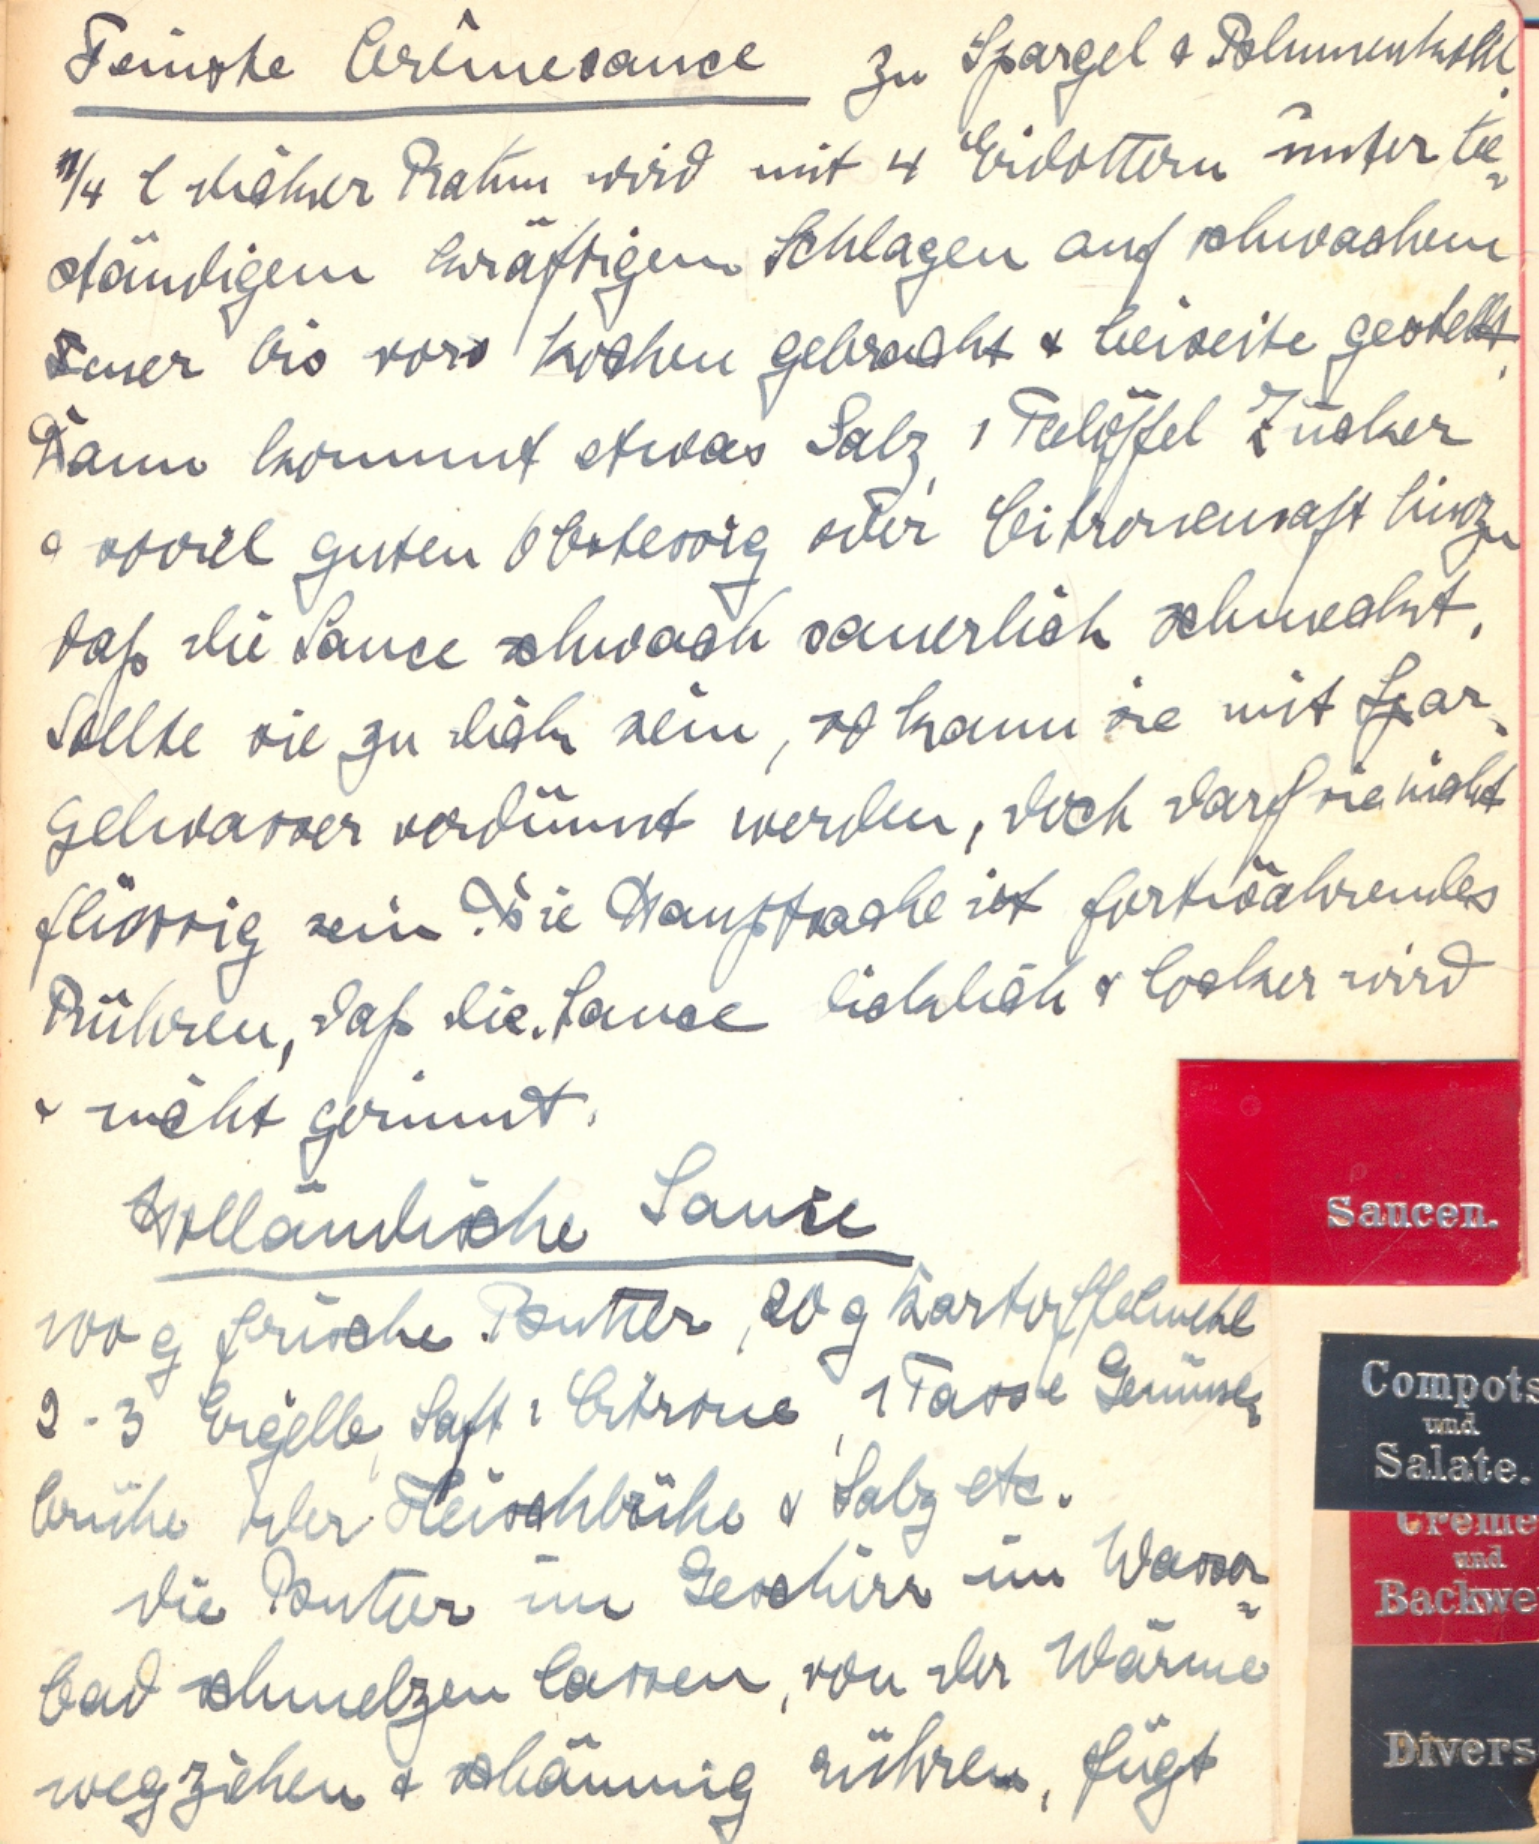 Feinste Crêmesauce zu Spargel & Blumenkohl.
1/4 l dicker Rahm wird mit 4 Eidottern unter be=
ständigem kräftigem Schlagen auf schwachem
Feuer bis vors Kochen gebracht & beiseite gestellt.
Dann kommt etwas Salz, 1 Teelöffel Zucker
& soviel guten Obstessig oder Citronensaft hinzu
daß die Sauce schwach säuerlich schmeckt.
Sollte sie zu dick sein, so kann sie mit Spar-
gelwasser verdünnt werden, doch darf sie nicht
flüssig sein. Die Hauptsache ist fortwährendes
Rühren, daß die Sauce dicklich & locker wird
& nicht gerinnt.
Holländische Sauce
100 g frische Butter, 20 g Kartoffelmehl
2-3 Eigelb, Saft 1 Citrone, 1 Tasse Gemüse=
brühe oder Fleischbrühe & Salz etc.
die Butter im Geschirr im Wasser=
bad schmelzen lassen, von der Wärme
wegziehen & schäumig rühren, fügt
Saucen.
Compots
und
Salate.
Creme
und
Backwe
Divers